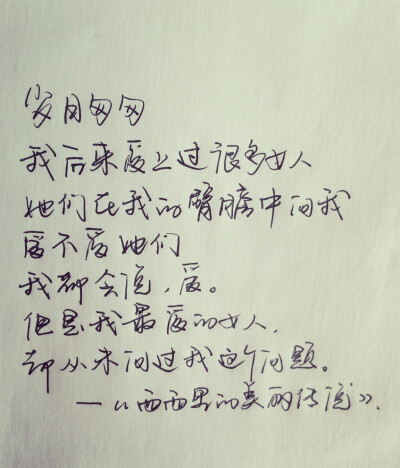 岁月匆匆
我后来爱上过很多女人
她们在我的臂膀中问我
爱不爱她们
我都会说，爱。
但是我最爱的女人，
却从未问过我这个问题。
——《西西里的美丽传说》.